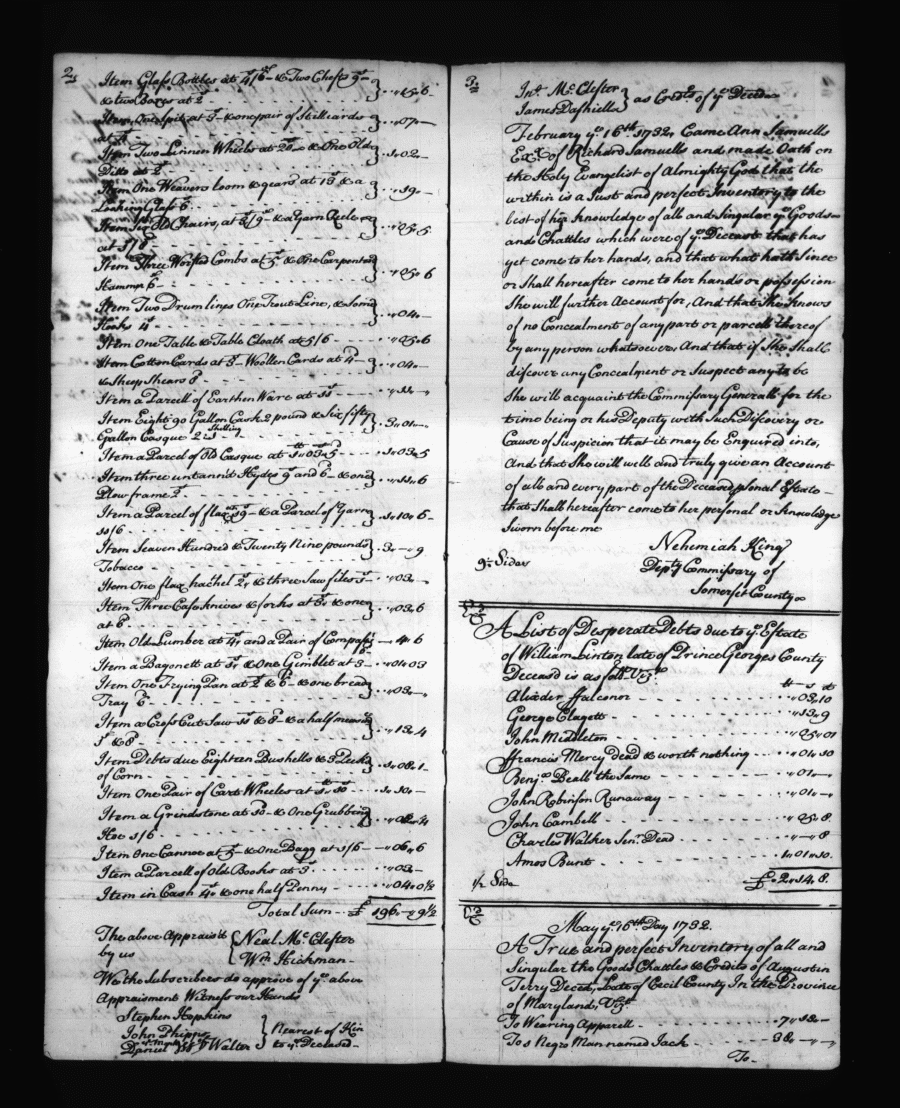 2
Item Glass Bottles at 4/6 - & Two Chests 9s -
& two Boxes at 2 - - - " 15 " 6
Item One Spit at 5 - & one pair of Stilliards
at - - " 07 -
Item Two Linnen Wheels at 20 - & One Old
Ditto at 2 - - 1 " 02 -
Item One Weavers loom & gears at 13s & a
Looking Glass 6 - - " 19 -
Item Six Old Chairs, at 2/9 - & a Yarn Reele
at 2/8 - - " 05 " 5
Item Three Worsted Combs at 5s & One Carpenters
Hammr 6 - - - " 05 " 6
Item Two Drum lines One Trout Line, & Some
Hooks 4s - - " 04 -
Item One Table & Table Cloath at 5/6 - - " 05 " 6
Item Cotton Cards at 3 - Woollen Cards at 4 -
& Sheep Shears 8 - - " 04 -
Item a Parcell of Earthen Ware at 11s - - " 11 - "
Item Eight 90 Gallon Cask 2 pound & Six fifty
Gallon Casque 2 : 1 shilling - 3 " 01 -
Item a Parcel of Old Casque at 1 " 03 " 5 - - 1 " 03 " 5
Item three untann'd Hydes 9s and 6 - & one
Plow frame 2 - - " 11 " 6
Item a Parcel of flax 19 - & a Parcel of Yarn
11/6 - - 1 " 10 " 6 -
Item Seaven Hundred & Twenty Nine pounds
Tobacco - - 3 " - " 9
Item One flax hachel 2s & three Saw files 1s - - " 03 - "
Item Three Case knives & forks at 3s & one
at 6 - - " 03 " 6
Item Old Lumber at 4s and a Pair of Compass - 4 " 6
Item a Bagonett at 1s & One Gimblet at 3 - - " 01 " 03
Item One Frying Pan at 2 & 6 - & one bread
Tray 6 - - " 03 - "
Item a Cross Cut Saw 11s & 8 - & a half measure
1s & 8 - - " 13 " 4
Item Debts due Eighteen Bushells & 3 Pecks
of Corn - - 1 " 08 " 1 -
Item One Pair of Cart Wheeles at 1 " 10 - - 1 " 10 -
Item a Grindstone at 10 - & One Grubbing
Hoe 1/6 -
Item One Cannoe at 5 - & One Bagg at 1/6 - - " 06 " 6
Item a Parcell of Old Books at 3 - - " 03 -
Item in Cash 4s & one half Penny - - " 04 " 0½
Total Sum - - £ 196 " - " 9½
The above Apprais'd
by us
Neal Mc Clester
Wm Hickman -
We the Subscribers do approve of ye above
Appraisment Witness our Hands
Stephen Hopkins
John Phipps
Daniel Walter
Nearest of Kin
to ye Deceased -
3
Jno Mc Clester
James Dashiell
as Credrs of ye Deced -
February ye 16th 1732, Came Ann Samuells
Exx of Richard Samuells and made Oath on
the Holy Evangelist of Almighty God that the
within is a Just and perfect Inventory to the
best of her knowledge of all and Singular ye Goods
and Chattles which were of ye Deceased that has
yet come to her hands, and that what hath Since
or Shall hereafter come to her hands or possession
She will further Account for, And that She knows
of no Concealment of any part or parcell thereof
by any person whatsoever And that if She Shall
discover any Concealment or Suspect any to be
She will acquaint the Commissary Generall for the
time being or his Deputy with Such Discovery or
Cause of Suspicion that it may be Enquired into,
And that She will well and truly give an Account
of all and every part of the Deceased psonal Estate -
that Shall hereafter come to her personal or knowledge
Sworn before me
Nehemiah King
9½ Sides
Depty Commissary of
Somerset County
A List of Desperate Debts due to ye Estate
of William Linton late of Prince Georges County
Deceased is as foll: Vizt
George Clagett - - " 13 " 9
John Middleton - - " 05 " 01
ffrancis Mercy dead & worth nothing - - " 01 " 10
Benja Beall the Same - - " 01 - "
John Robinson Runaway - - " 01 - "
John Cambell - - " 05 " 8
Charles Walker Senr Dead - - " - " 8
Amos Bunt - - 1 " 01 " 10
½ Side
£ " 2 " 14 " 8
May ye 16th Day 1732.
A True and perfect Inventory of all and
Singular the Goods Chattles & Credits of Augustin
Terry Deced, Late of Cecil County In the Province
of Maryland, Vizt
To Wearing Apparell - - 7 " 12 -
To 1 Negro Man named Jack - - 38 " - " -
To -